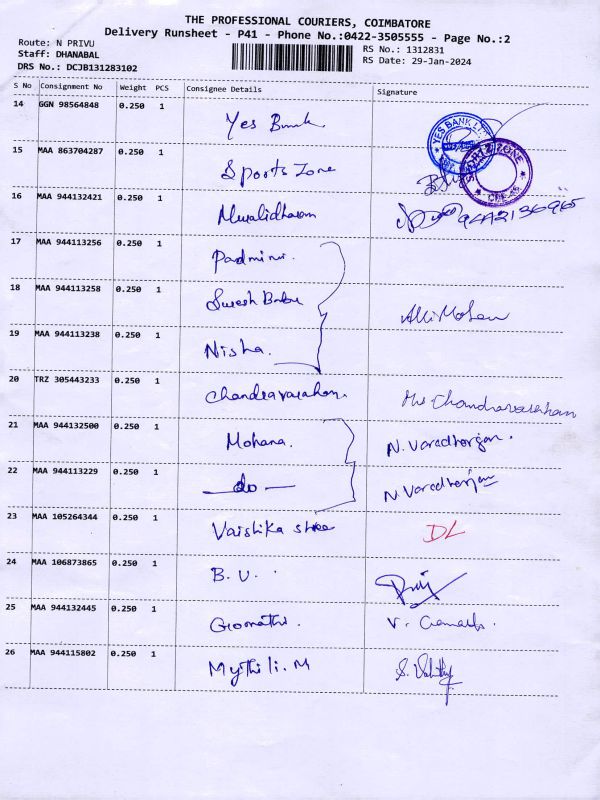 THE PROFESSIONAL COURIERS, COIMBATORE
Delivery Runsheet - P41 - Phone No.:0422-3505555 - Page No.:2
Route: N PRIVU
Staff: DHANABAL
DRS No.: DCJB131283102
RS No.: 1312831
RS Date: 29-Jan-2024
S No Consignment No Weight PCS Consignee Details Signature
14 GGN 98564848 0.250 1 Yes Bank
YES BANK LT
15 MAA 863704287 0.250 1 Sports Zone
SPORTZ ZONE
16 MAA 944132421 0.250 1 Muralidharan
17 MAA 944113256 0.250 1 Padmini.
18 MAA 944113258 0.250 1 Suresh Babu
19 MAA 944113238 0.250 1 Nisha.
20 TRZ 305443233 0.250 1 Chandravarahan. Chandravarahan
21 MAA 944132500 0.250 1 Mohana. N. Varadharajan.
22 MAA 944113229 0.250 1 —do— N. Varadharajan
23 MAA 105264344 0.250 1 Vaishika shree DL
24 MAA 106873865 0.250 1 B.U.
25 MAA 944132445 0.250 1 Gomathi. V.
26 MAA 944115802 0.250 1 Mythili.M S.